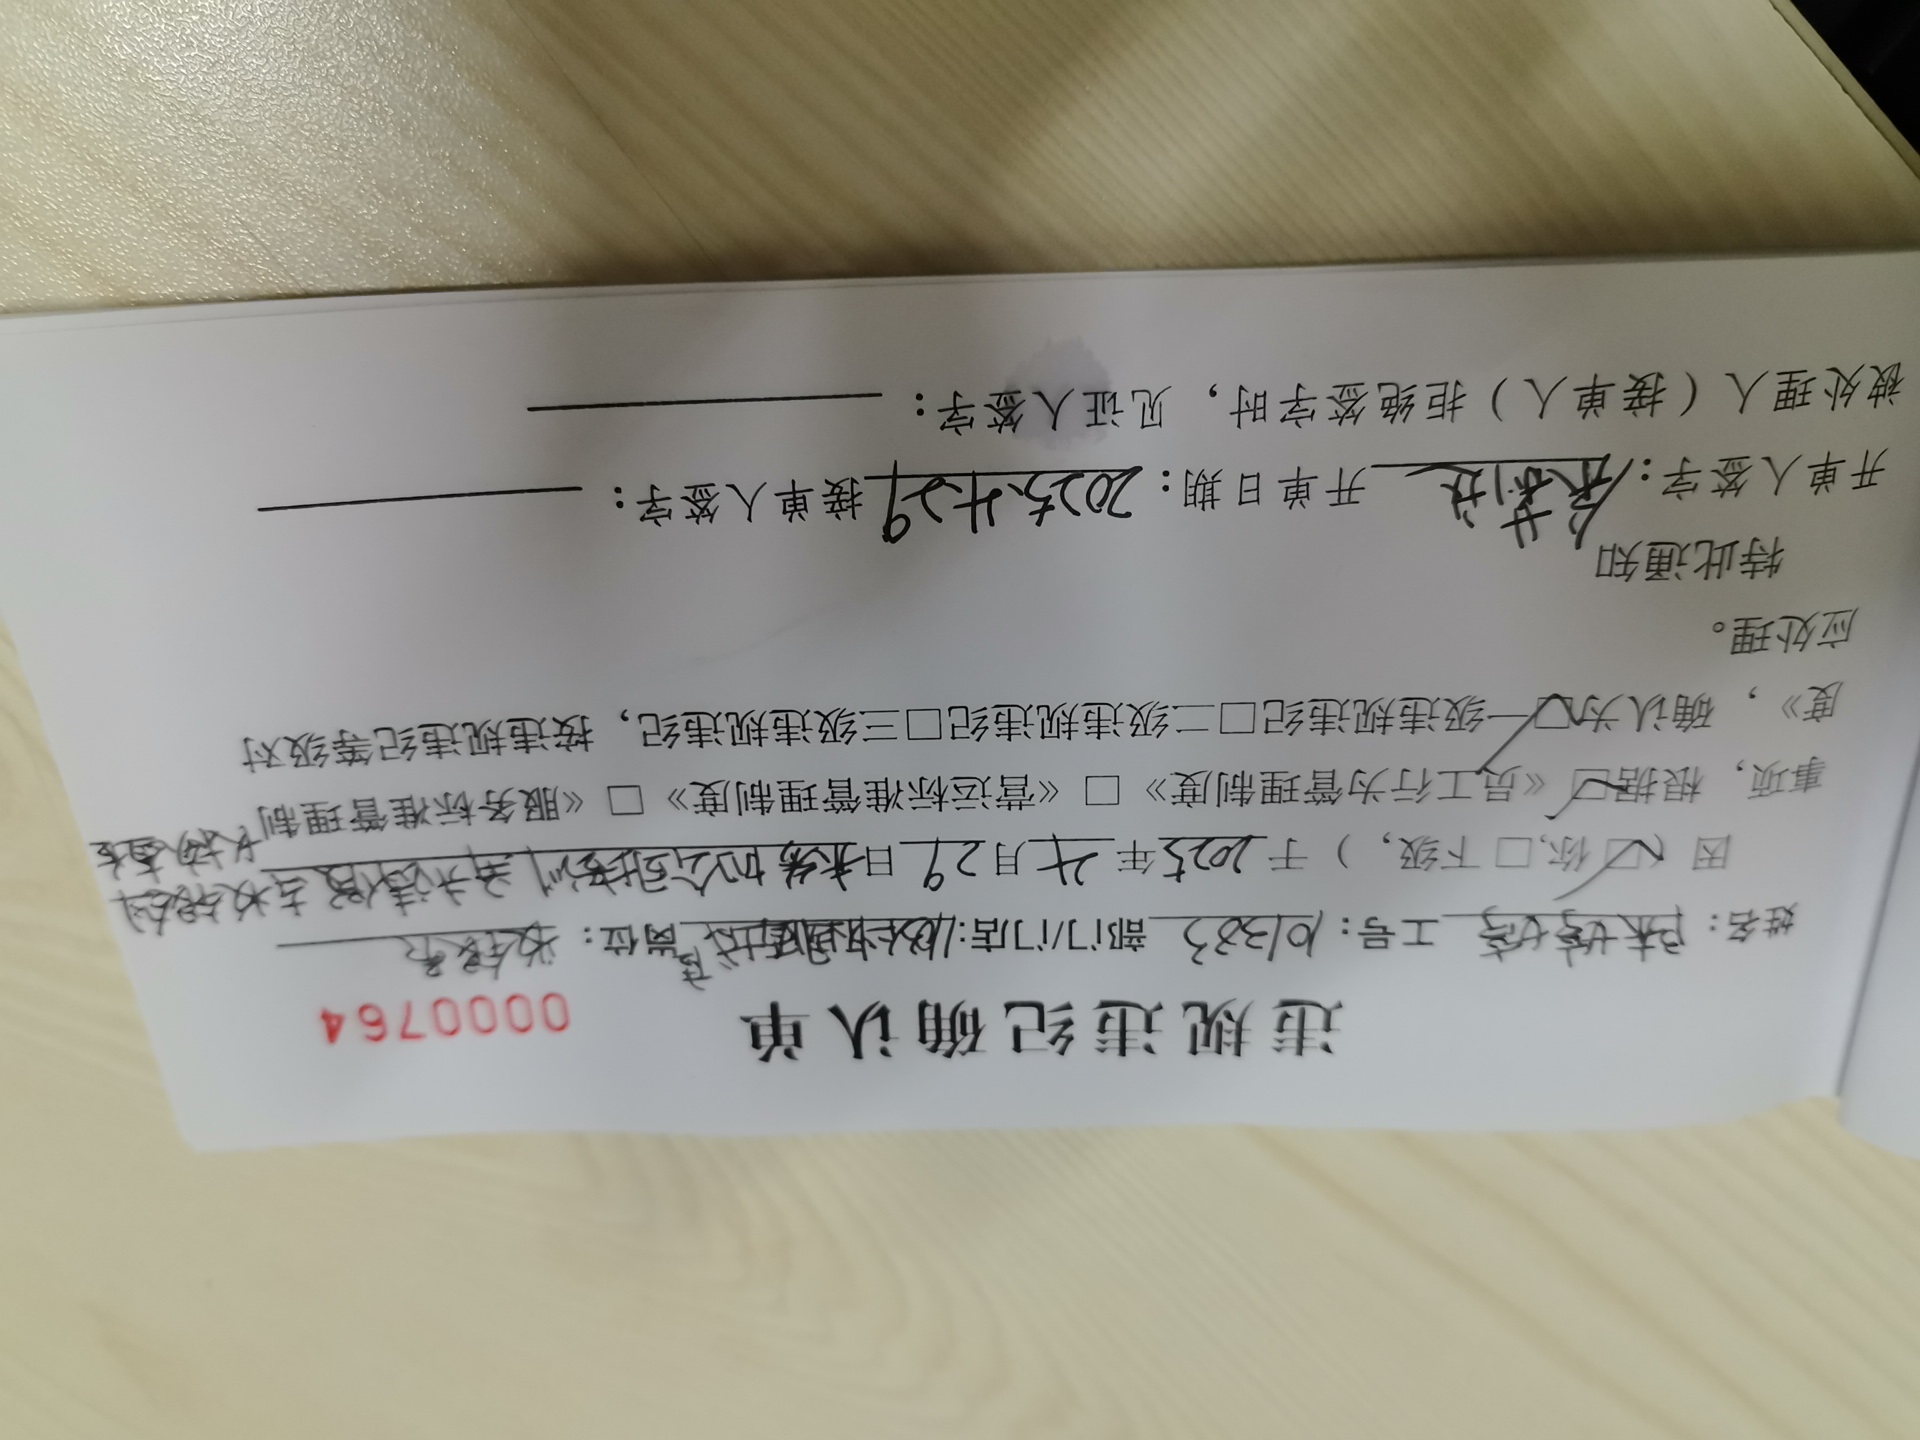 违规违纪确认单 0000764
姓名：陈婷婷 工号：101383 部门/门店： 岗位：收银员
因（☑你，□下级，）于2025年4月29日未参加公司培训，并未请假去收银台
事项，根据☑《员工行为管理制度》□《营运标准管理制度》□《服务标准管理制
度》，确认为☑一级违规违纪□二级违规违纪□三级违规违纪，按违规违纪等级对
应处理。
特此通知
开单人签字： 开单日期：2025.4.29 接单人签字：
被处理人（接单人）拒绝签字时，见证人签字：